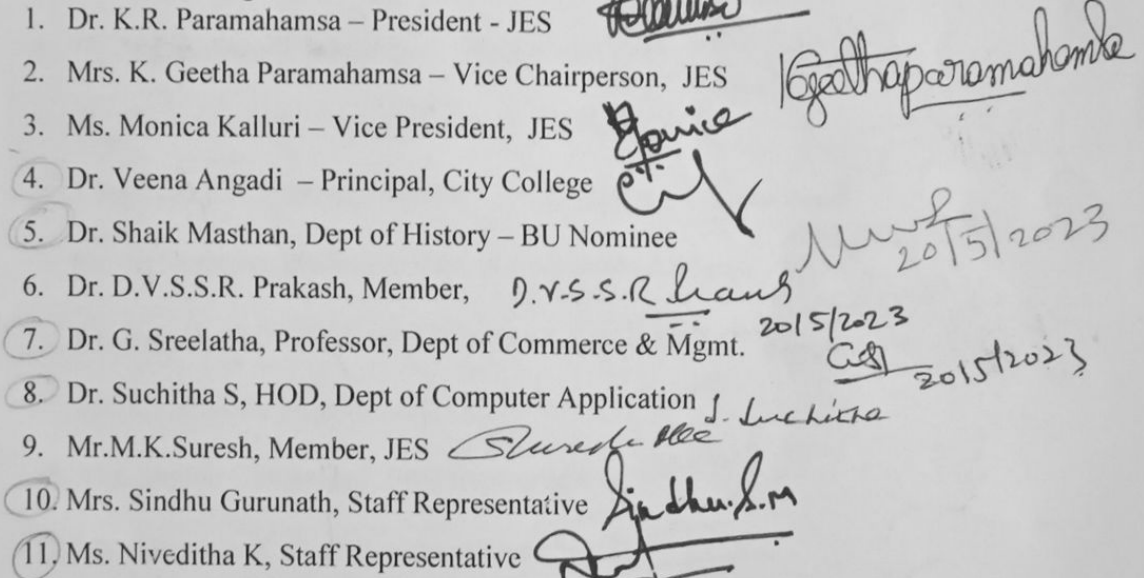 1. Dr. K.R. Paramahamsa – President - JES
2. Mrs. K. Geetha Paramahamsa – Vice Chairperson, JES
KGeethaparamahamsa
3. Ms. Monica Kalluri – Vice President, JES
Monica
4. Dr. Veena Angadi – Principal, City College
5. Dr. Shaik Masthan, Dept of History – BU Nominee
20/5/2023
6. Dr. D.V.S.S.R. Prakash, Member, D.V.S.S.R
20/5/2023
7. Dr. G. Sreelatha, Professor, Dept of Commerce & Mgmt.
20/5/2023
8. Dr. Suchitha S, HOD, Dept of Computer Application S. Suchitha
9. Mr.M.K.Suresh, Member, JES
10. Mrs. Sindhu Gurunath, Staff Representative Sindhu.S.M
11. Ms. Niveditha K, Staff Representative